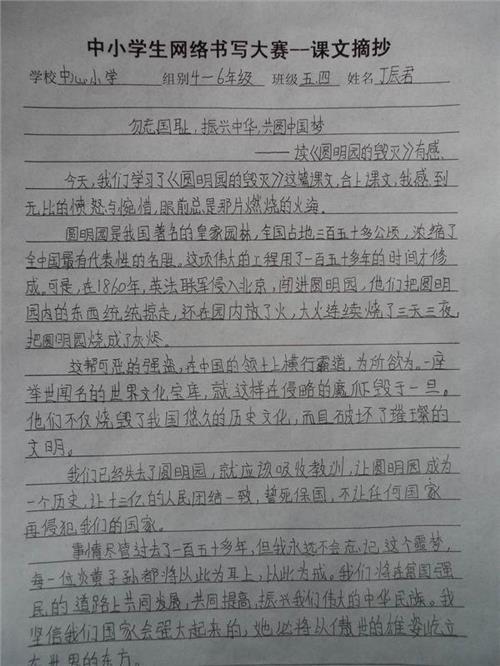 中小学生网络书写大赛--课文摘抄
学校中心小学 组别4-6年级 班级五.四 姓名丁辰君
勿忘国耻,振兴中华,共圆中国梦
——读《圆明园的毁灭》有感
今天,我们学习了《圆明园的毁灭》这篇课文,合上课文,我感到
无比的愤怒与惋惜,眼前总是那片燃烧的火海。
圆明园是我国著名的皇家园林,全国占地三百五十多公顷,浓缩了
全中国最有代表性的名胜。这项伟大的工程用了一百五十多年的时间才修
成。可是,在1860年,英法联军侵入北京,闯进圆明园,他们把圆明
园内的东西统统掠走,还在园内放了火,大火连续烧了三天三夜,
把圆明园烧成了灰烬。
这帮可恶的强盗,在中国的领土上横行霸道,为所欲为。一座
举世闻名的世界文化宝库,就这样在侵略的魔爪下毁于一旦。
他们不仅烧毁了我国悠久的历史文化,而且破坏了璀璨的
文明。
我们已经失去了圆明园,就应该吸收教训,让圆明园成为
一个历史,让十三亿的人民团结一致,誓死保国,不让任何国家
再侵犯我们的国家。
事情尽管过去了一百五十多年,但我永远不会忘记这个噩梦,
每一位炎黄子孙都将以此为耳上,以此为戒。我们将在富国强
民的道路上共同发展,共同提高,振兴我们伟大的中华民族。我
坚信我们国家会强大起来的,她必将以傲世的雄姿屹立
在世界的东方。